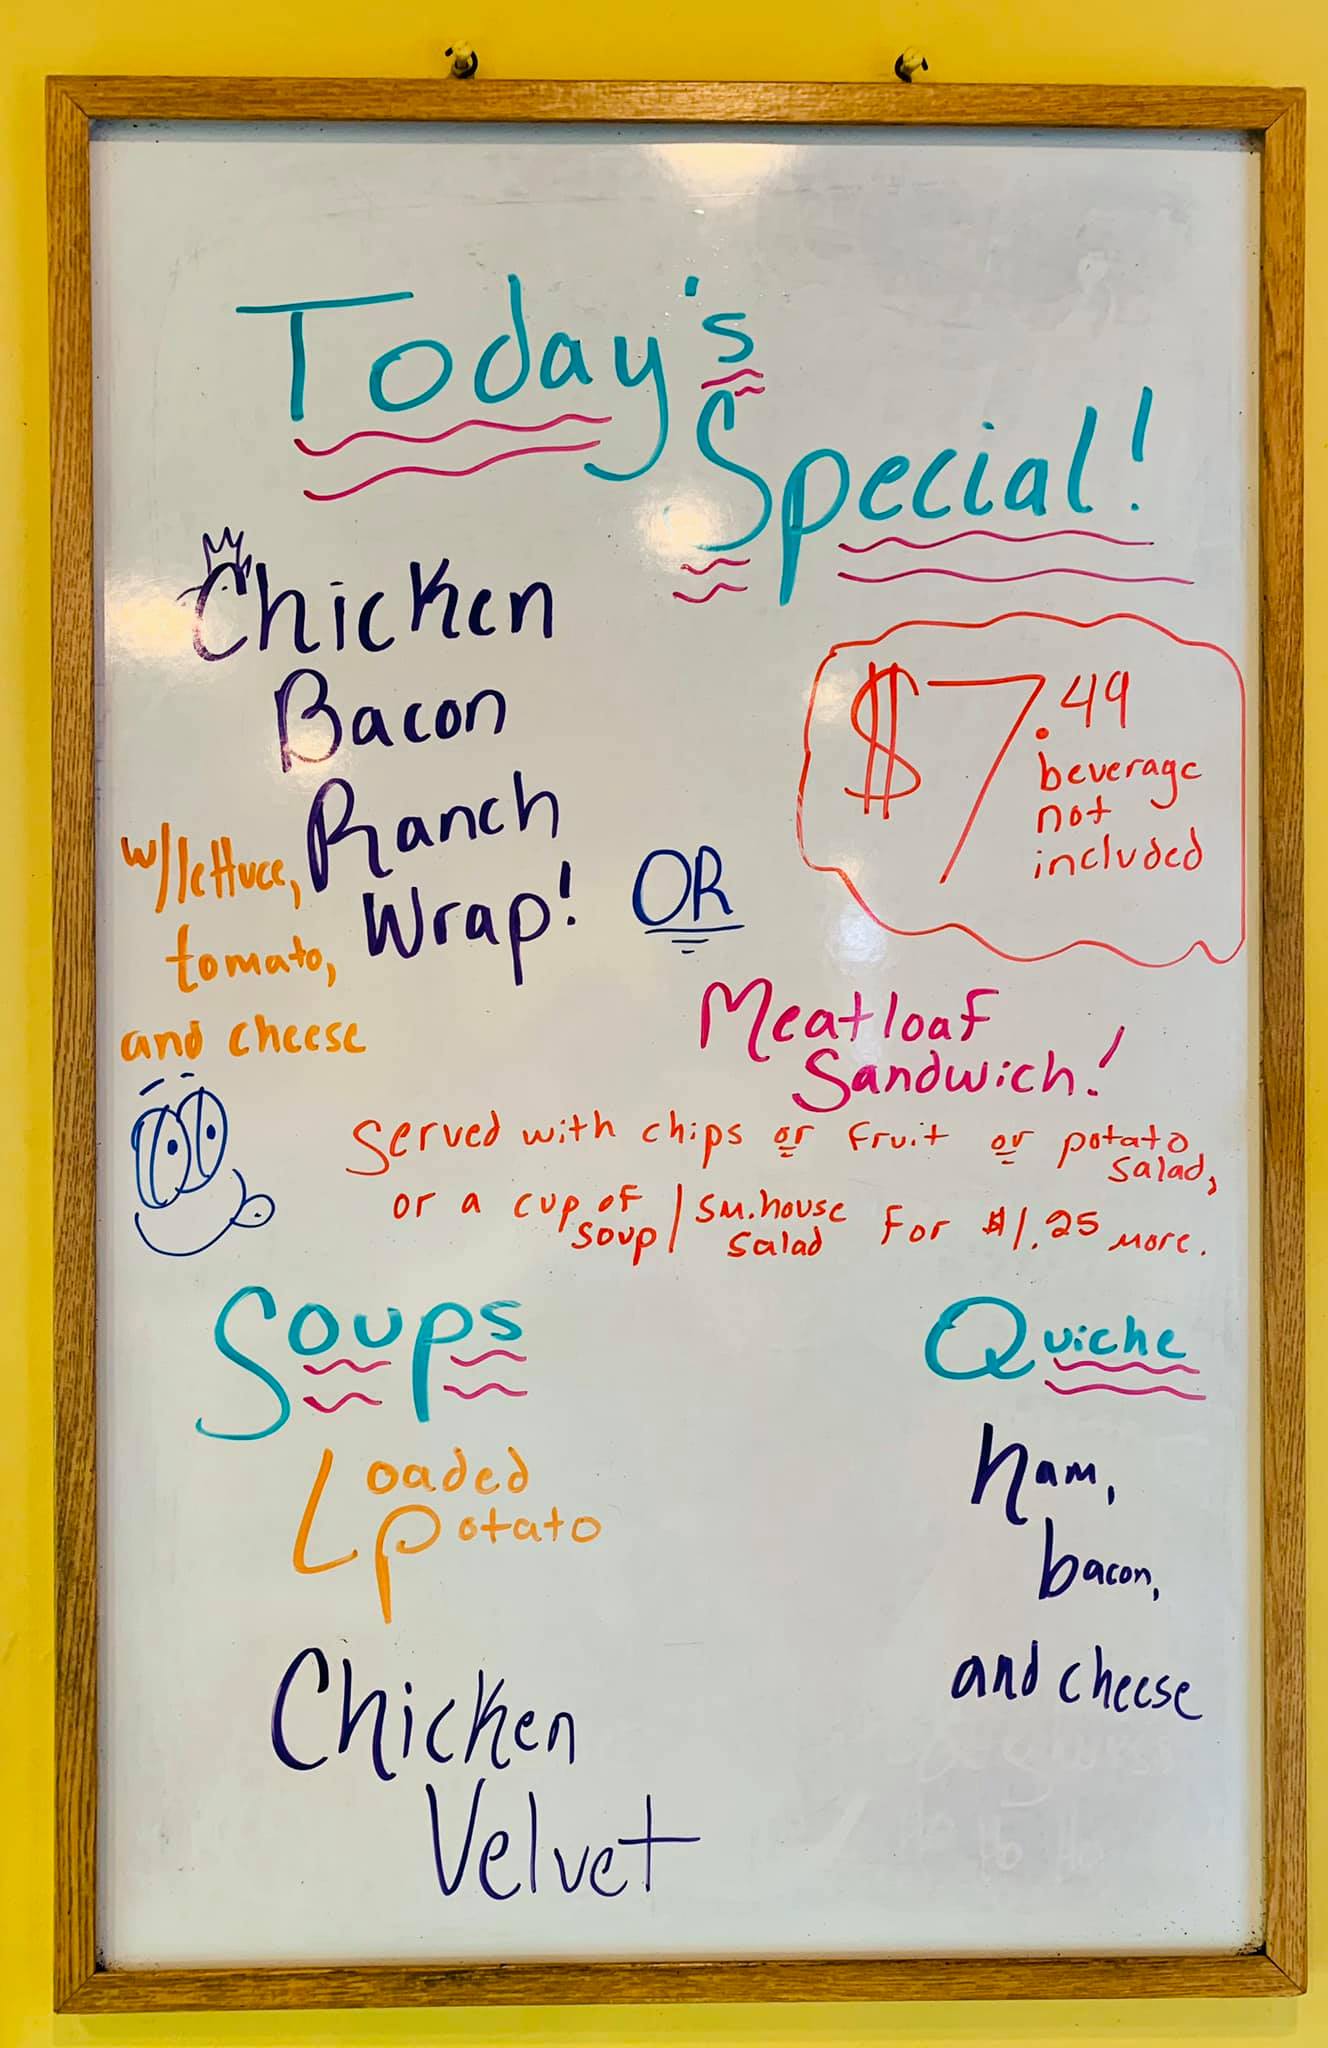 Today's
Special!
Chicken
Bacon
Ranch
Wrap!
w/lettuce,
tomato,
and cheese
OR
$7.49
beverage
not
included
Meatloaf
Sandwich!
Served with chips or fruit or potato salad,
or a cup of soup / sm. house salad for $1.25 more.
Soups
Loaded
Potato
Chicken
Velvet
Quiche
ham,
bacon,
and cheese